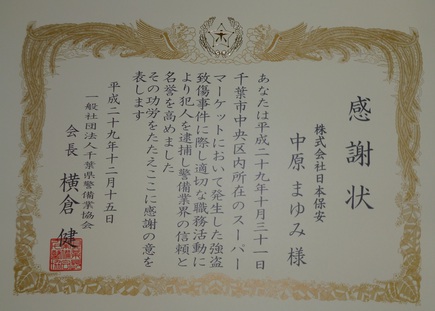 感謝状
株式会社日本保安
中原 まゆみ 様
あなたは平成二十九年十月三十一日
千葉市中央区内所在のスーパー
マーケットにおいて発生した強盗
致傷事件に際し適切な職務活動に
より犯人を逮捕し警備業界の信頼と
名誉を高めました
その功労をたたえここに感謝の意を
表します
平成二十九年十二月十五日
一般社団法人千葉県警備業協会
会長 横倉 健